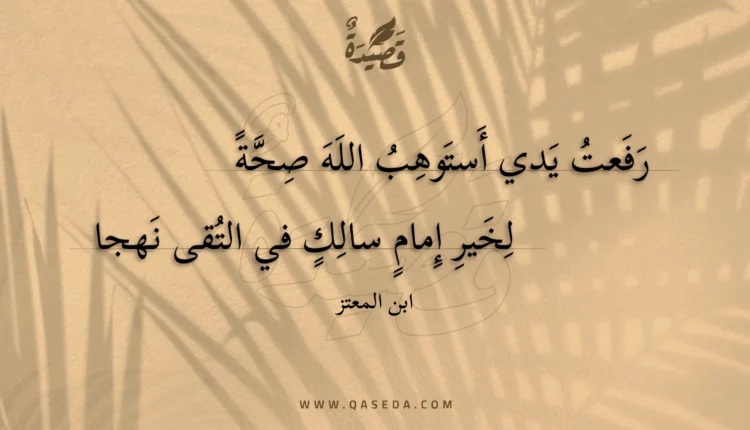 قَصِيْدَةٌ
رَفَعتُ يَدي أَستَوهِبُ اللَهَ صِحَّةً
لِخَيرِ إِمامٍ سالِكٍ في التُقى نَهجا
ابن المعتز
WWW.QASEDA.COM